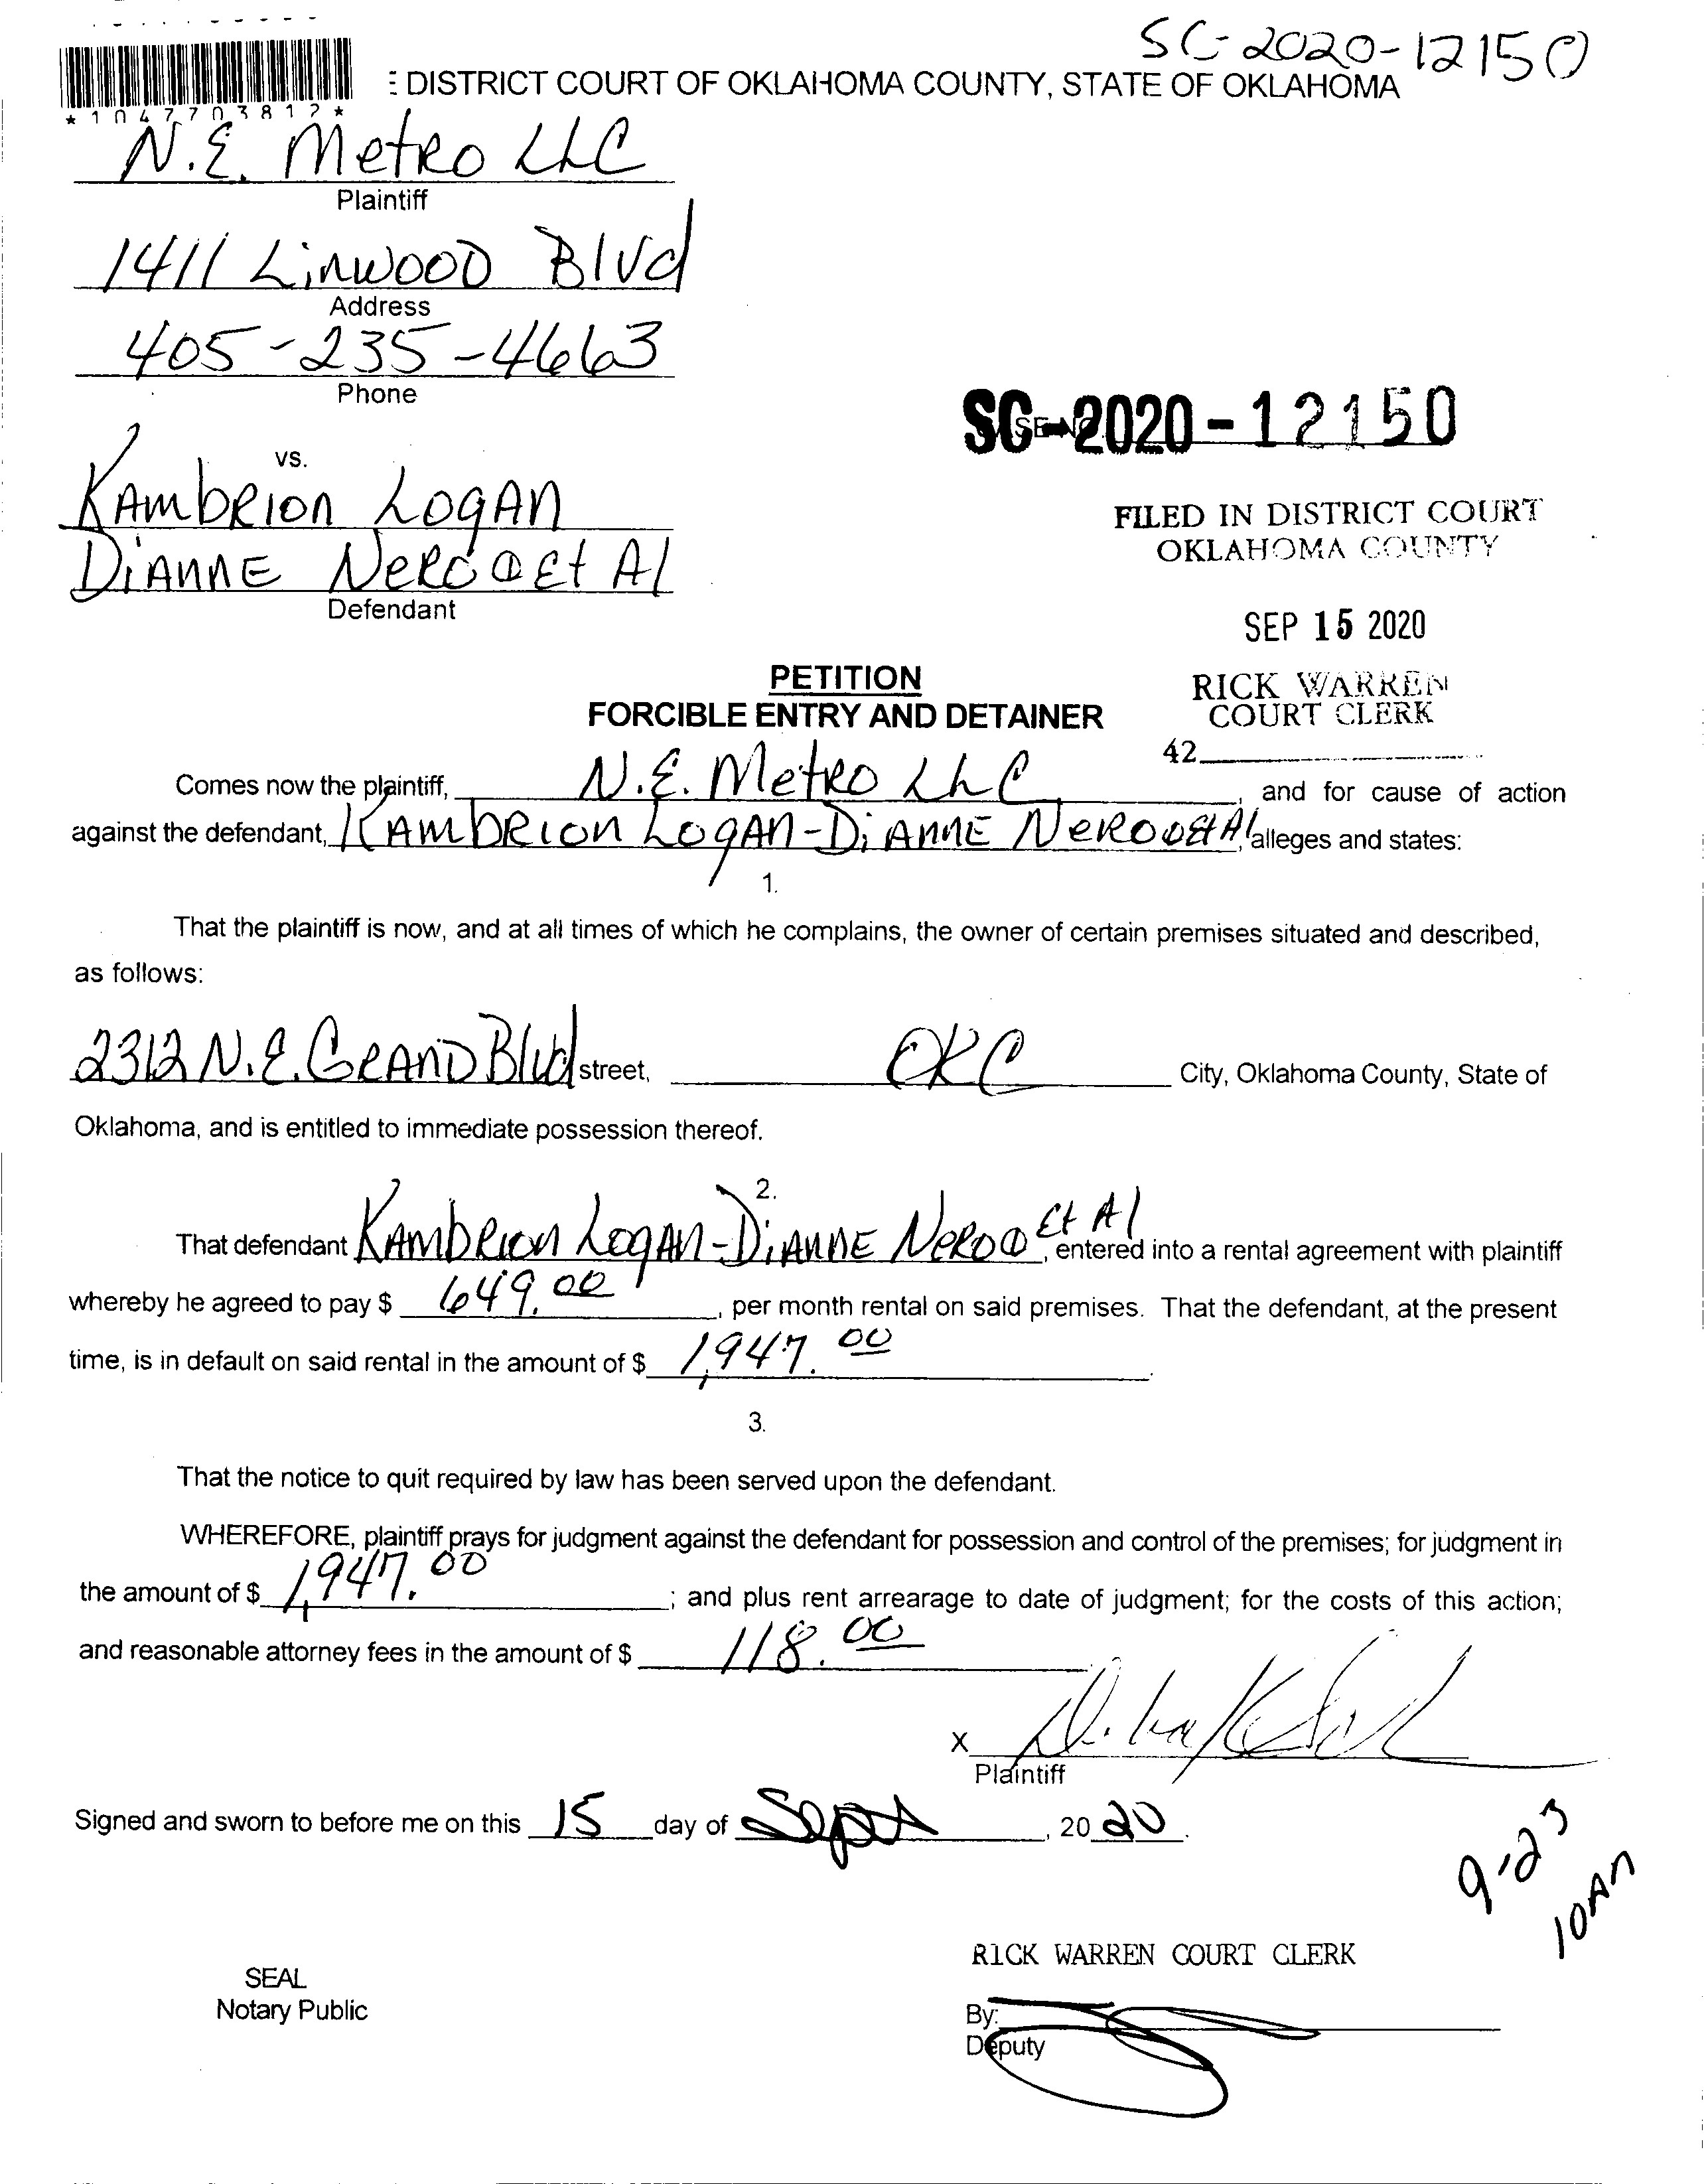 SC-2020-12150
DISTRICT COURT OF OKLAHOMA COUNTY, STATE OF OKLAHOMA
* 1 0 4 7 7 0 3 8 1 2 *
N.E. Metro LLC
Plaintiff
1411 Linwood Blvd
Address
405-235-4663
Phone
SC-2020-12150
vs.
Kambrion Logan
FILED IN DISTRICT COURT
OKLAHOMA COUNTY
Dianne Nero Et Al
Defendant
SEP 15 2020
PETITION
RICK WARREN
FORCIBLE ENTRY AND DETAINER
COURT CLERK
42
Comes now the plaintiff, N.E. Metro LLC, and for cause of action
against the defendant, Kambrion Logan-Dianne Nero et Al, alleges and states:
1.
That the plaintiff is now, and at all times of which he complains, the owner of certain premises situated and described,
as follows:
2312 N.E. Grand Blvd street, OKC City, Oklahoma County, State of
Oklahoma, and is entitled to immediate possession thereof.
2.
That defendant Kambrion Logan-Dianne Nero Et Al, entered into a rental agreement with plaintiff
whereby he agreed to pay $ 649.00, per month rental on said premises. That the defendant, at the present
time, is in default on said rental in the amount of $ 1,947.00.
3.
That the notice to quit required by law has been served upon the defendant.
WHEREFORE, plaintiff prays for judgment against the defendant for possession and control of the premises; for judgment in
the amount of $ 1,947.00; and plus rent arrearage to date of judgment; for the costs of this action;
and reasonable attorney fees in the amount of $ 118.00
X
Plaintiff
Signed and sworn to before me on this 15 day of Sept, 2020.
9-23
10AM
RICK WARREN COURT CLERK
SEAL
Notary Public
By:
Deputy